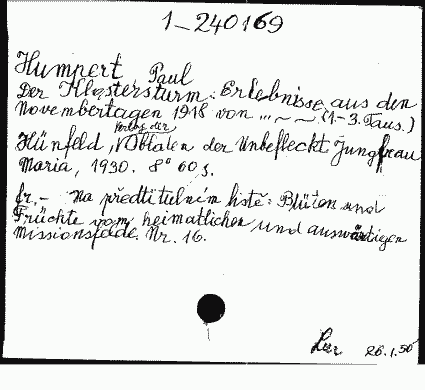 1-240169
Humpert, Paul
Der Klostersturm: Erlebnisse aus den
Novembertagen 1918 von ... ~ ~ (1-3. Taus.)
Verlag der
Hünfeld, Oblaten der Unbefleckt. Jungfrau
Maria, 1930. 8° 60 s.
fr.- Na předtitulním listě: Blüten und
Früchte vom heimatlichen und auswärtigen
Missionsfelde. Nr. 16.
26.1.50